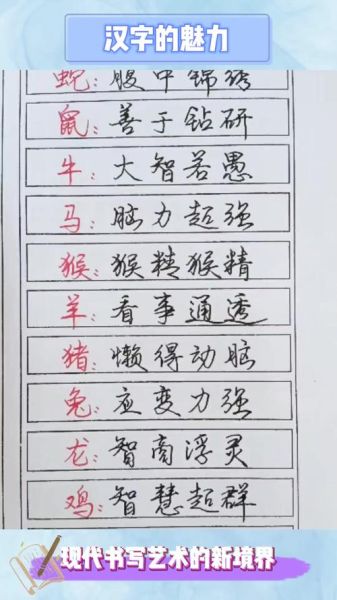 汉字的魅力
蛇：腹中锦绣
鼠：善于钻研
牛：大智若愚
马：脑力超强
猴：猴精猴精
羊：看事通透
猪：懒得动脑
兔：应变力强
龙：智商浮灵
鸡：智慧超群
现代书写艺术的新境界